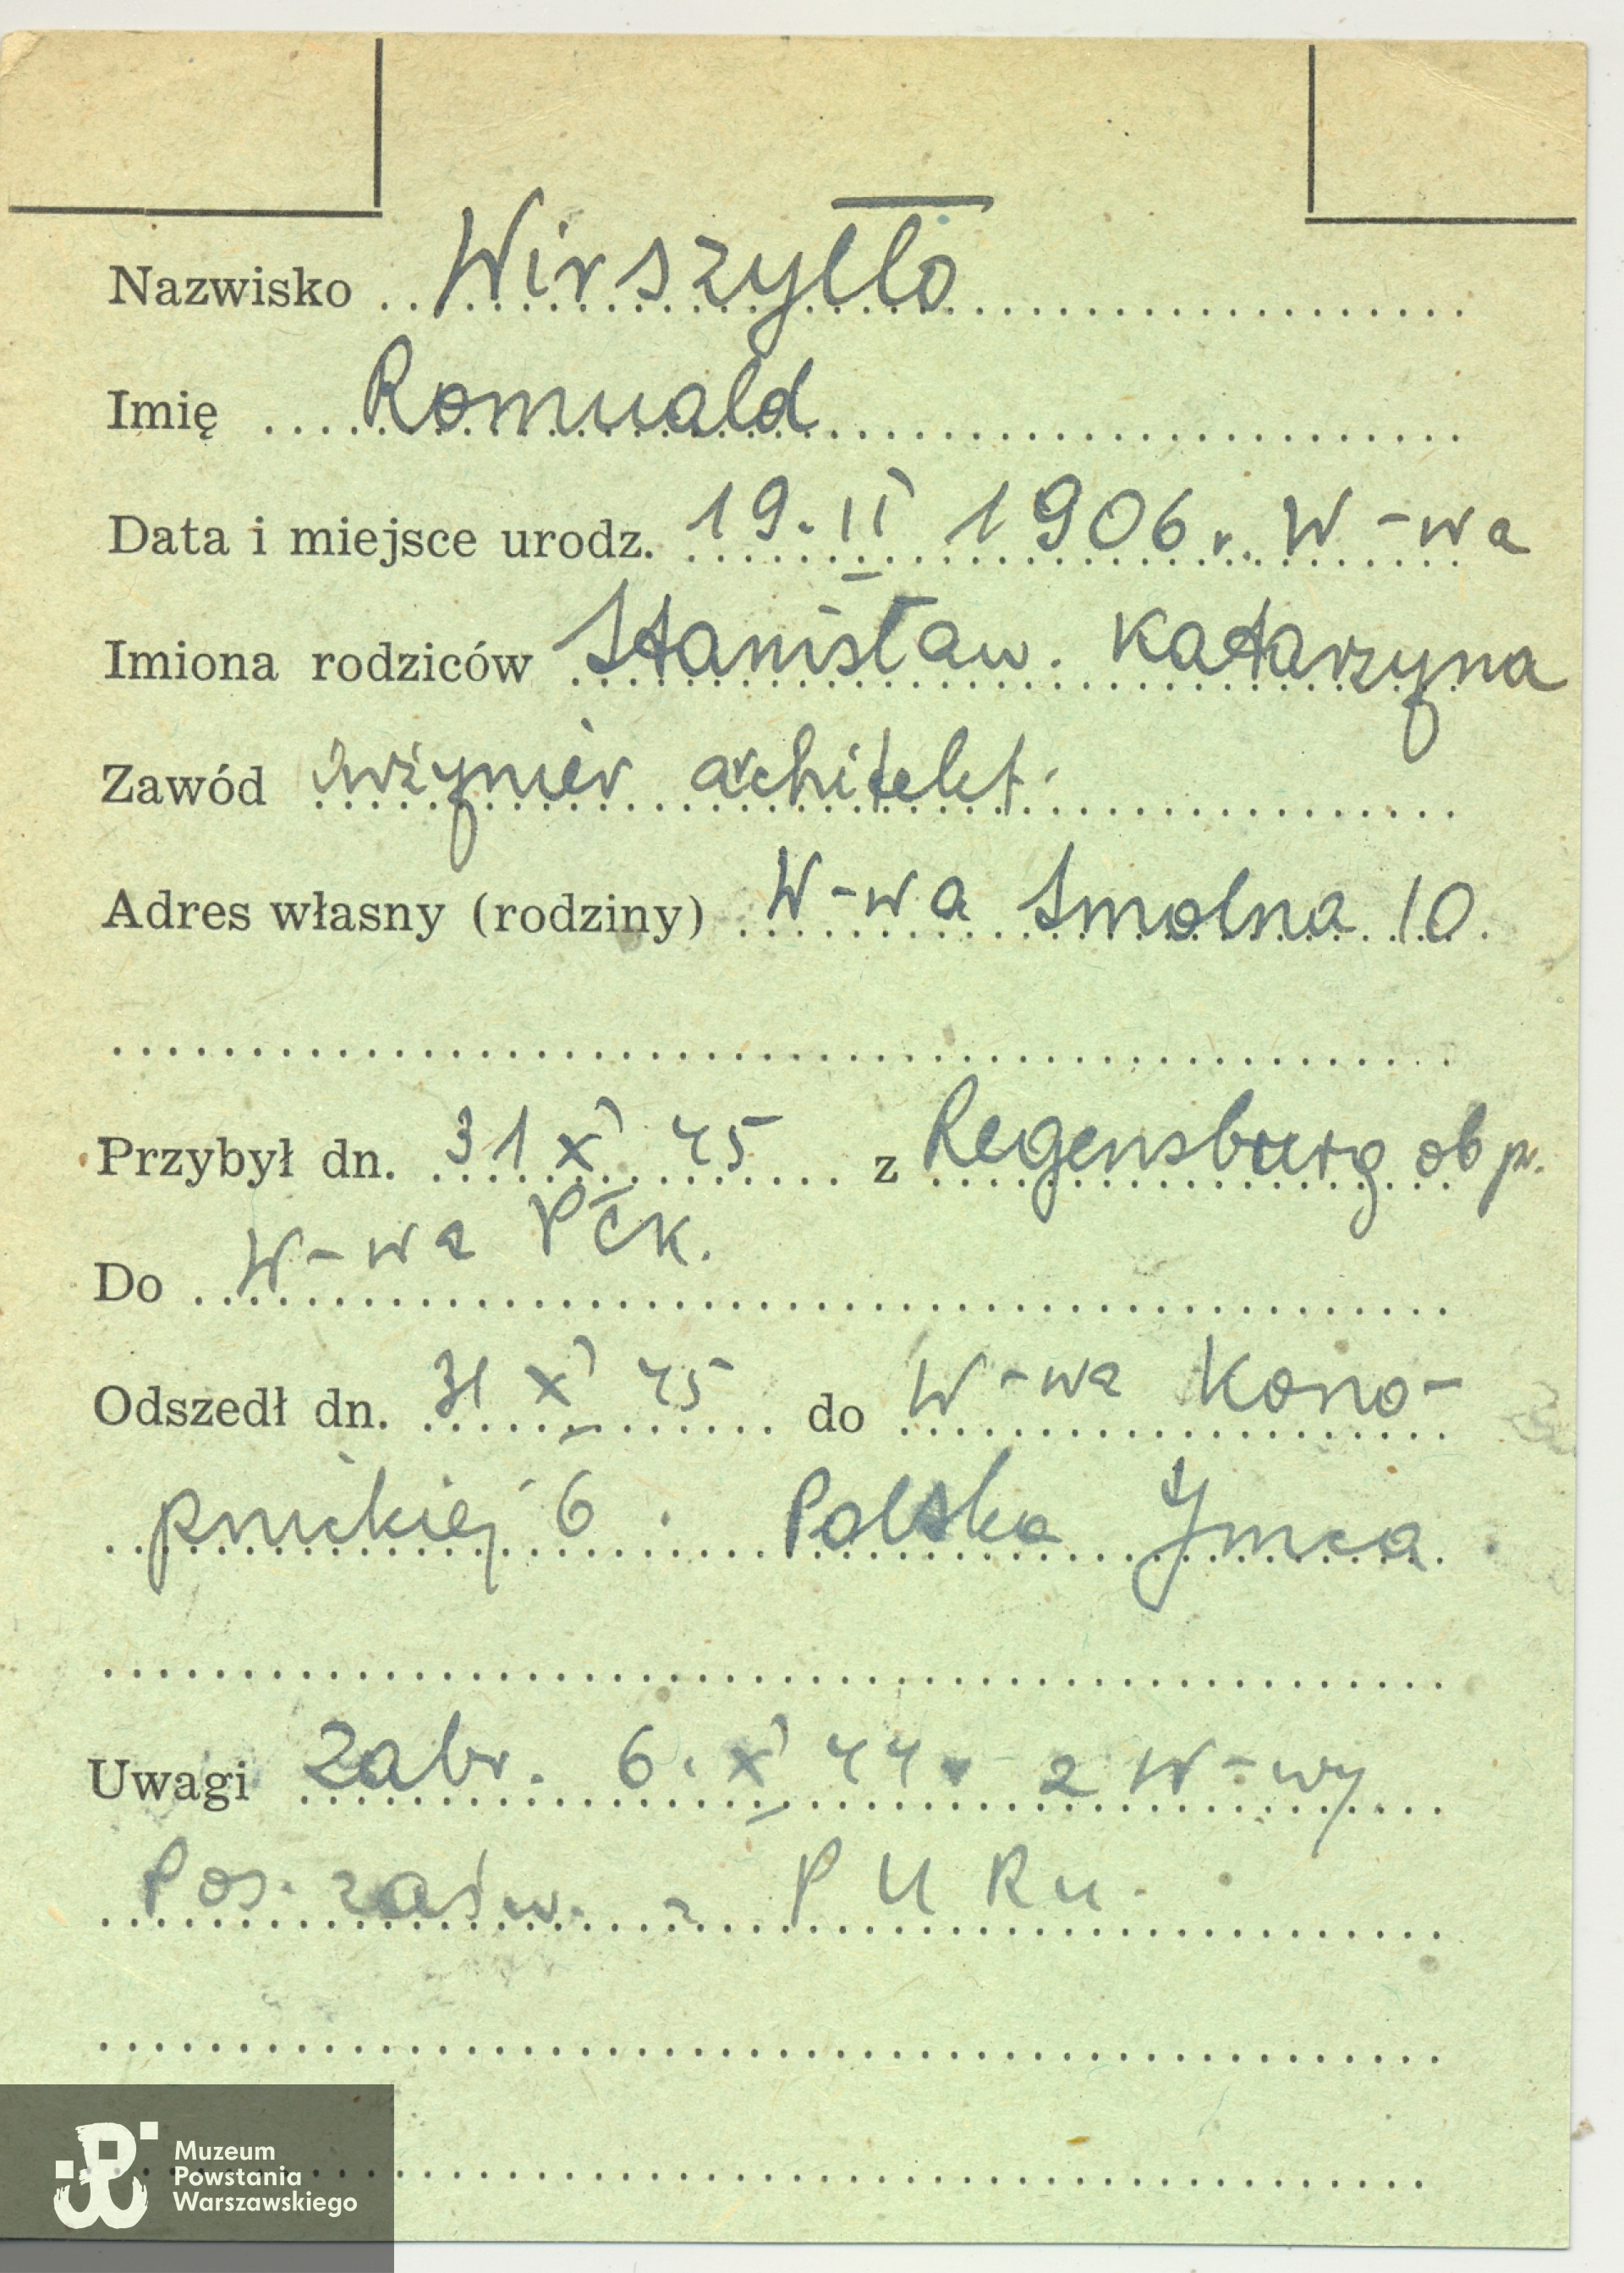 Nazwisko Wirszyłło
Imię Romuald
Data i miejsce urodz. 19.II 1906 r. W-wa
Imiona rodziców Stanisław. Katarzyna
Zawód inżynier architekt.
Adres własny (rodziny) W-wa Smolna 10.
Przybył dn. 31 X 45 z Regensburg ob p.
Do W-wa PCK.
Odszedł dn. 31 X 45 do W-wa Kono-
pnickiej 6. Polska Ymca.
Uwagi Zabr. 6. X 44. z W-wy
Pos. zaśw. z PURu.
Muzeum
Powstania
Warszawskiego